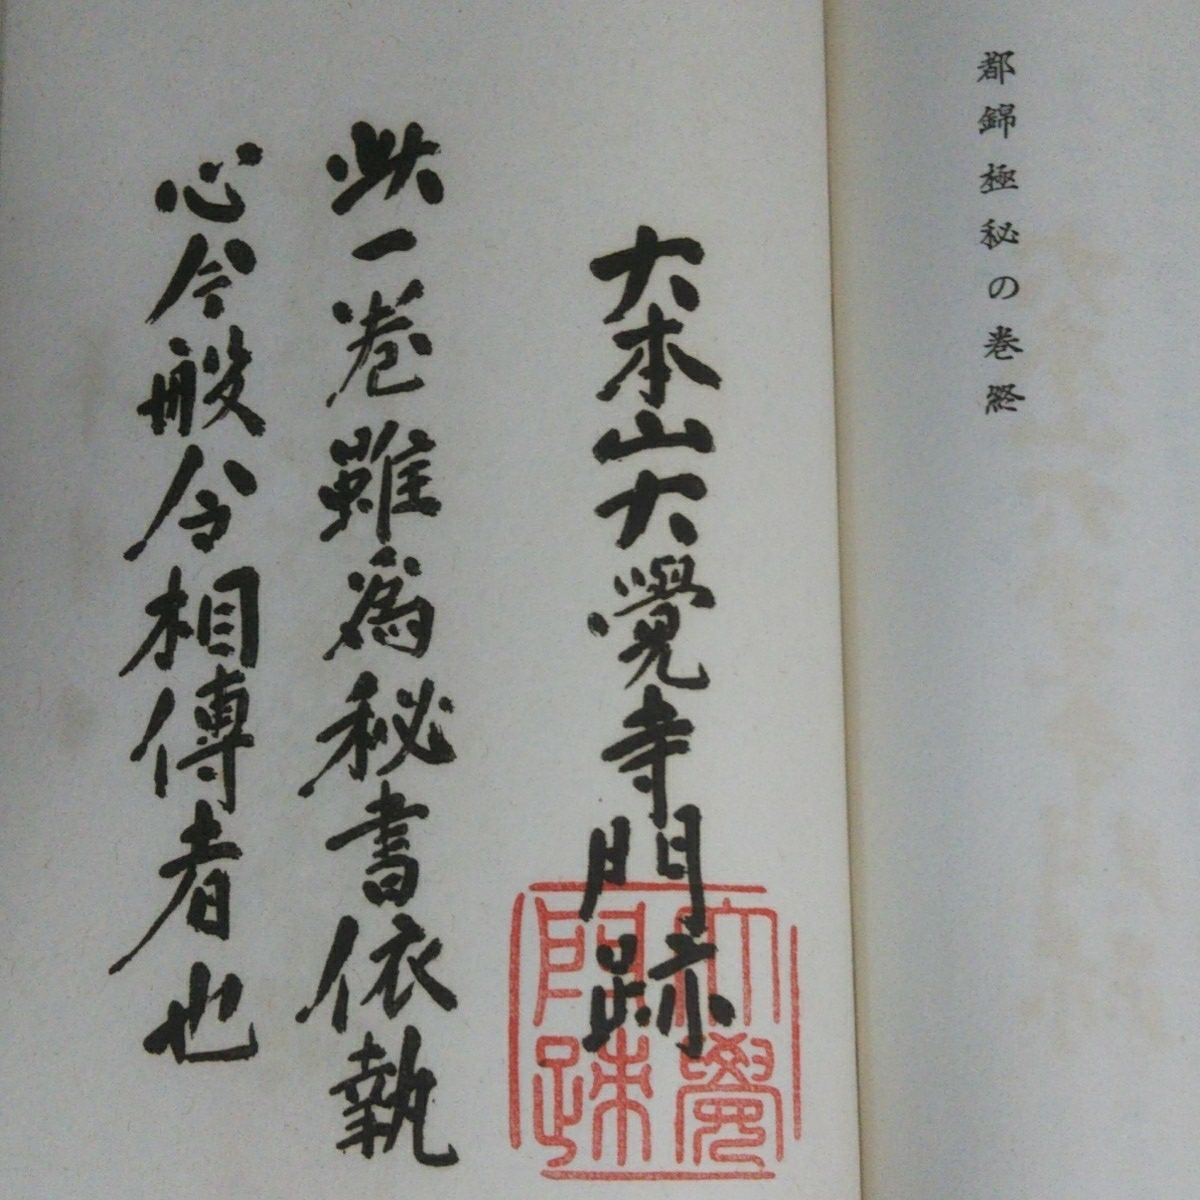 都錦極秘の巻終
大本山大覺寺門跡
此一巻雖為秘書依執
心今般令相傳者也
大覺
門跡